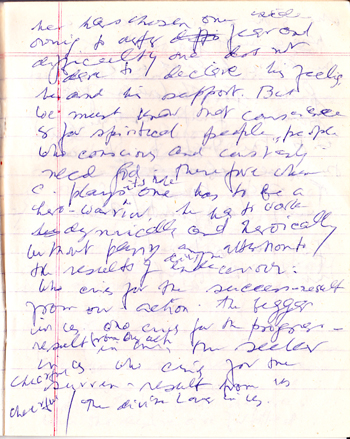 he has chosen one side
owing to fear and
difficulty one does not
dare to declare his feeling
and his support. But
we must know that conscience
is for spiritual people, people
who conscious and constantly
need God. Therefore when
c. plays its role one has to be a
hero-warrior, he has to work
dynamically and heroically
without paying any attention to
the results of divine endeavour.
Who cries for the success-result
from our action. The beggar
in us. Who cries for the progress-
result from our action The seeker
in us. Who cries for the
cheerful surren-result from us
cheerful / The divine lover in us.